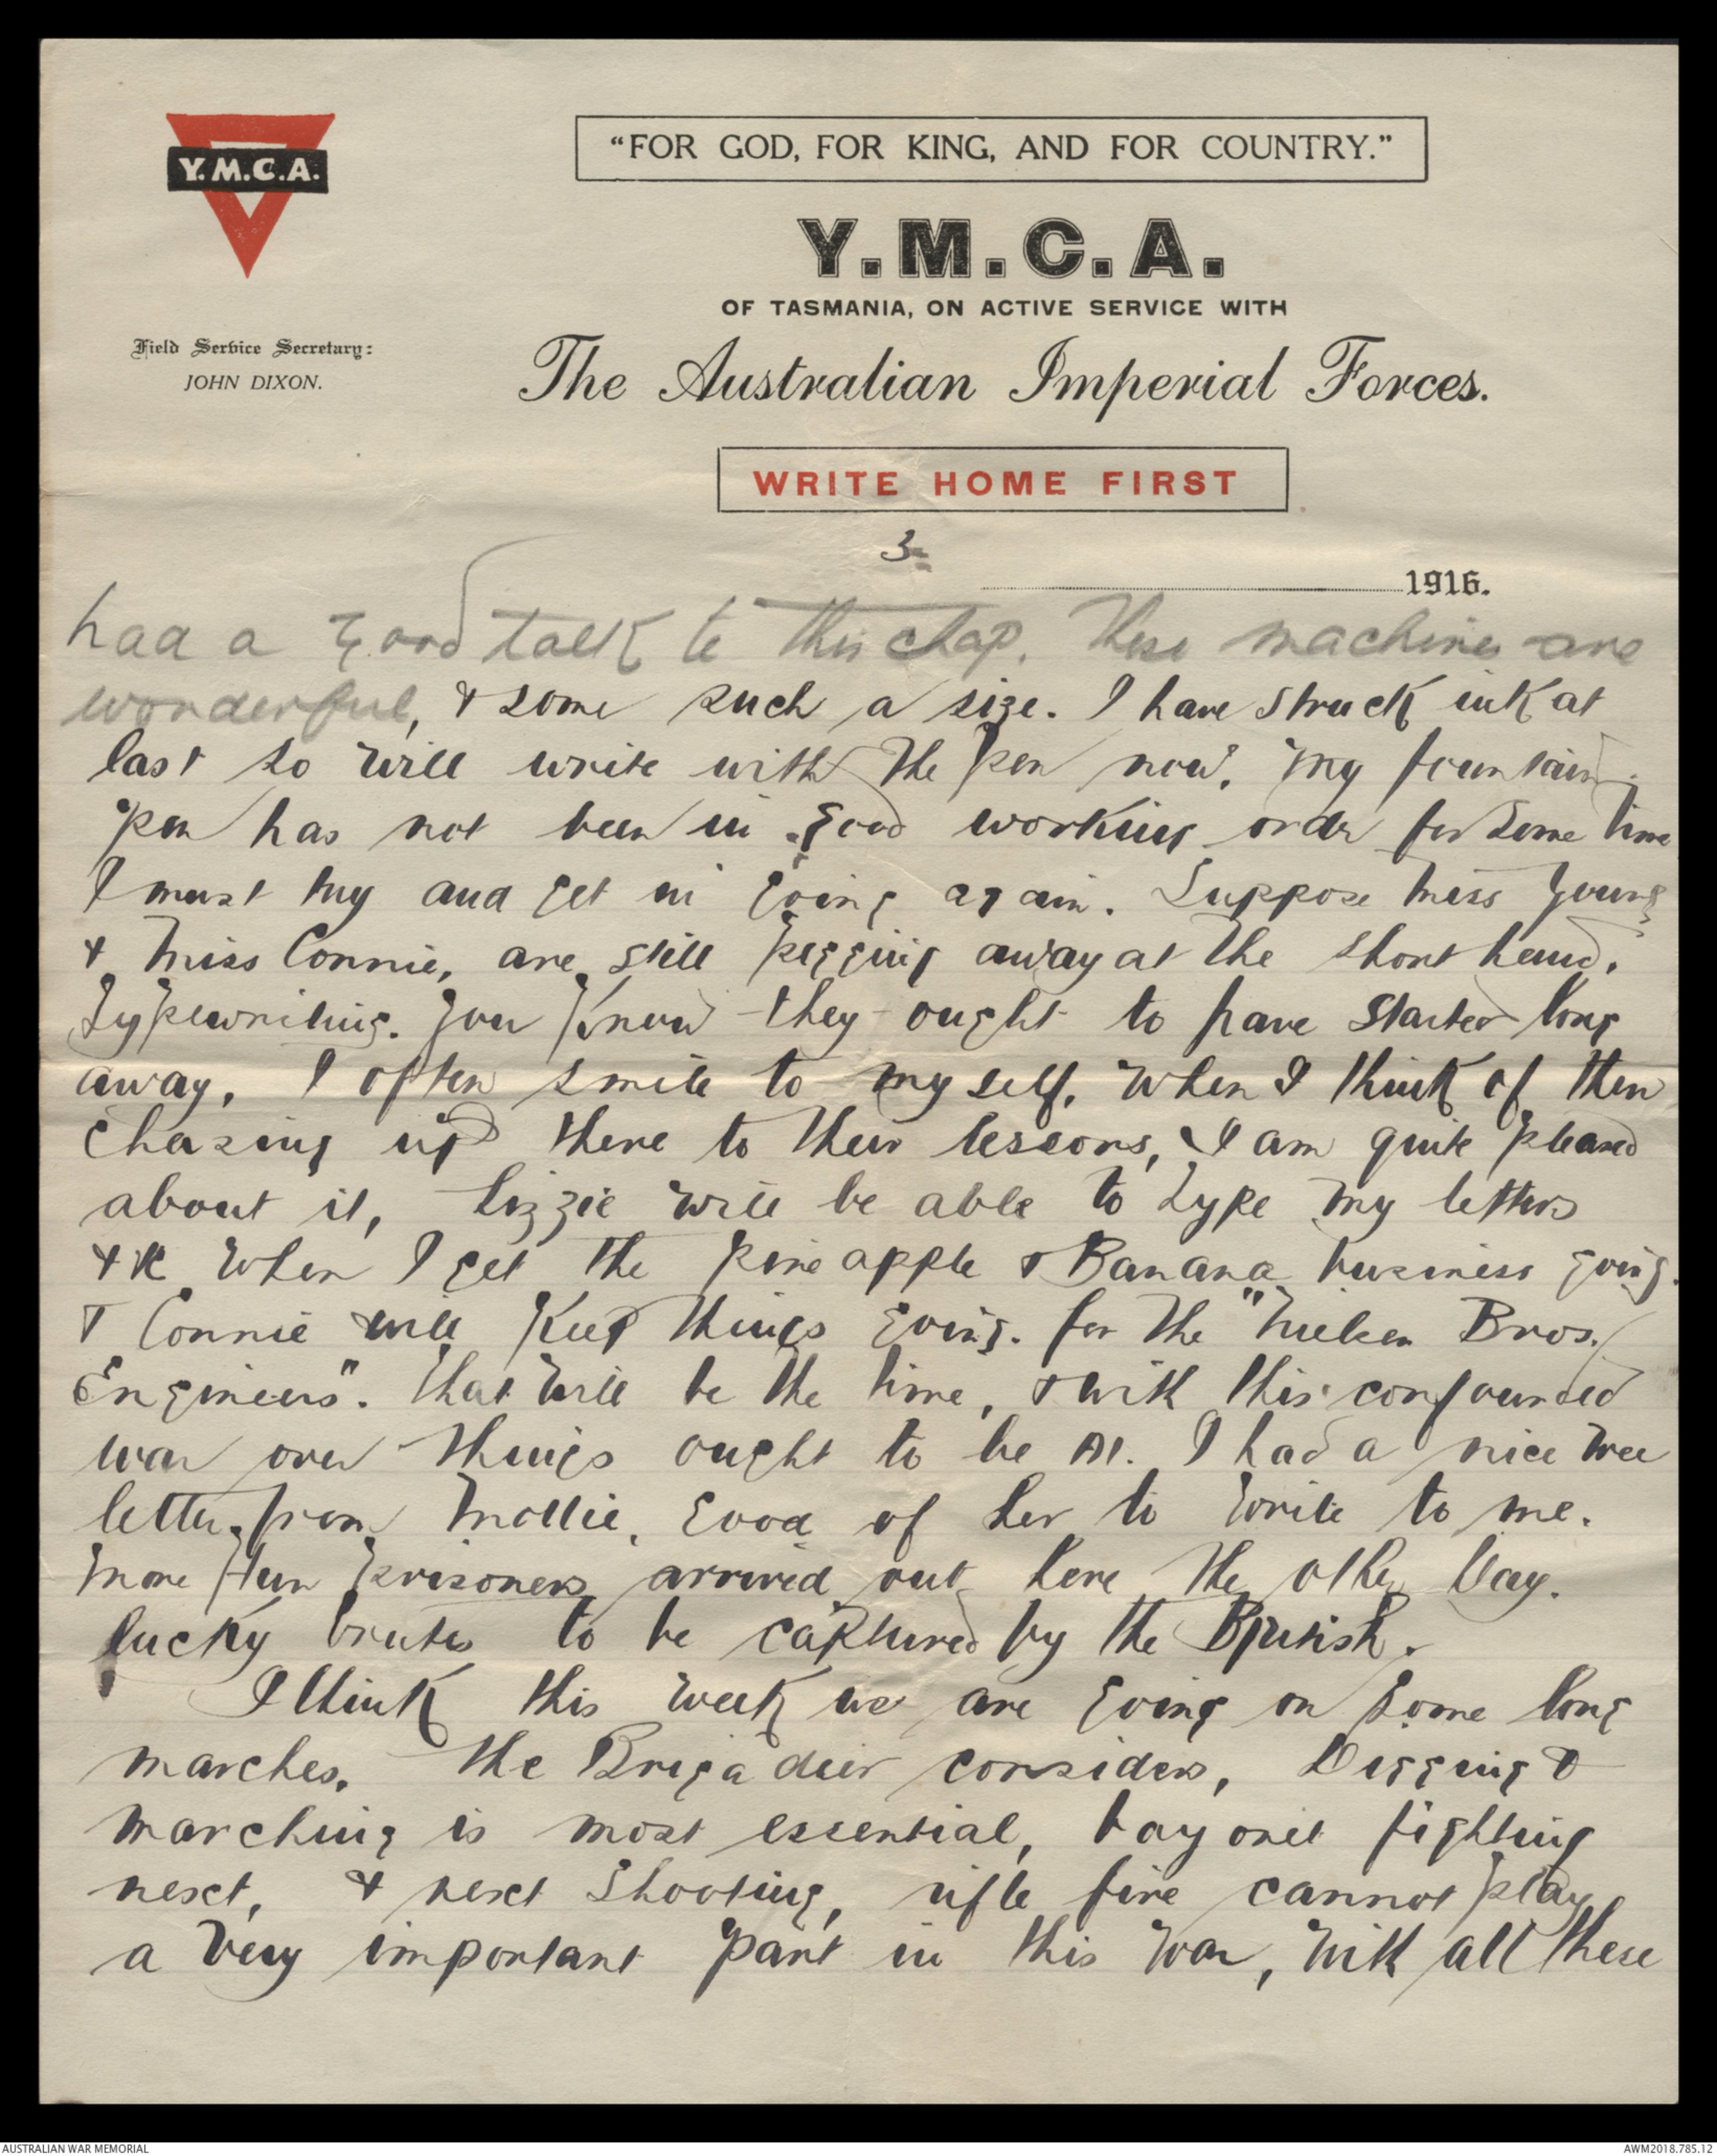 Y.M.C.A.
"FOR GOD, FOR KING, AND FOR COUNTRY."
Y.M.C.A.
OF TASMANIA, ON ACTIVE SERVICE WITH
The Australian Imperial Forces.
Field Service Secretary:
JOHN DIXON.
WRITE HOME FIRST
3
1916.
had a good talk to this chap. These machines are
wonderful, & some such a size. I have struck ink at
last so will write with the pen now. My fountain
pen has not been in good working order for some time
I must try and get in going again. Suppose Miss Young
& Miss Connie, are still pegging away at the short hand.
Typewriting. You know they ought to have started long
away. I often smile to myself. When I think of them
chasing up there to their lessons, & I am quite pleased
about it, Lizzie will be able to type my letters
&c When I get the pine apple & Banana business going.
& Connie will keep things going. for the " Bros.
Engineers". That will be the time, & with this confounded
war over things ought to be A1. I had a nice wee
letter from Mollie. Good of her to write to me.
More Hun prisoners arrived out here the other day.
lucky brutes to be captured by the British.
I think this week we are going on some long
marches. The Brigadeir considers, Digging &
marching is most essential, bayonet fighting
next, & next shooting, rifle fire cannot play
a very important part in this war, with all these
AUSTRALIAN WAR MEMORIAL
AWM2018.785.12